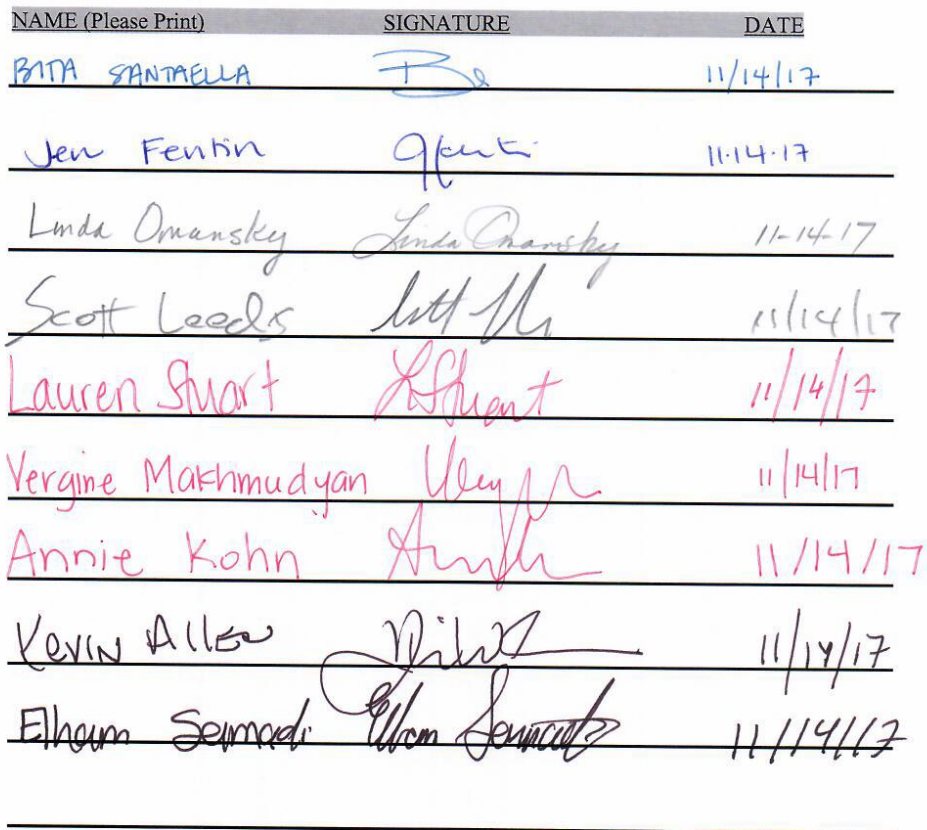 NAME (Please Print) SIGNATURE DATE
BITA SANTAELLA 11/14/17
Jen Fentin 11·14·17
Linda Omansky Linda Omansky 11-14-17
Scott Leedis 11/14/17
Lauren Stuart LStuart 11/14/17
Vergine Makhmudyan 11/14/17
Annie Kohn 11/14/17
Kevin Allen 11/14/17
Elham Semnadi 11/14/17